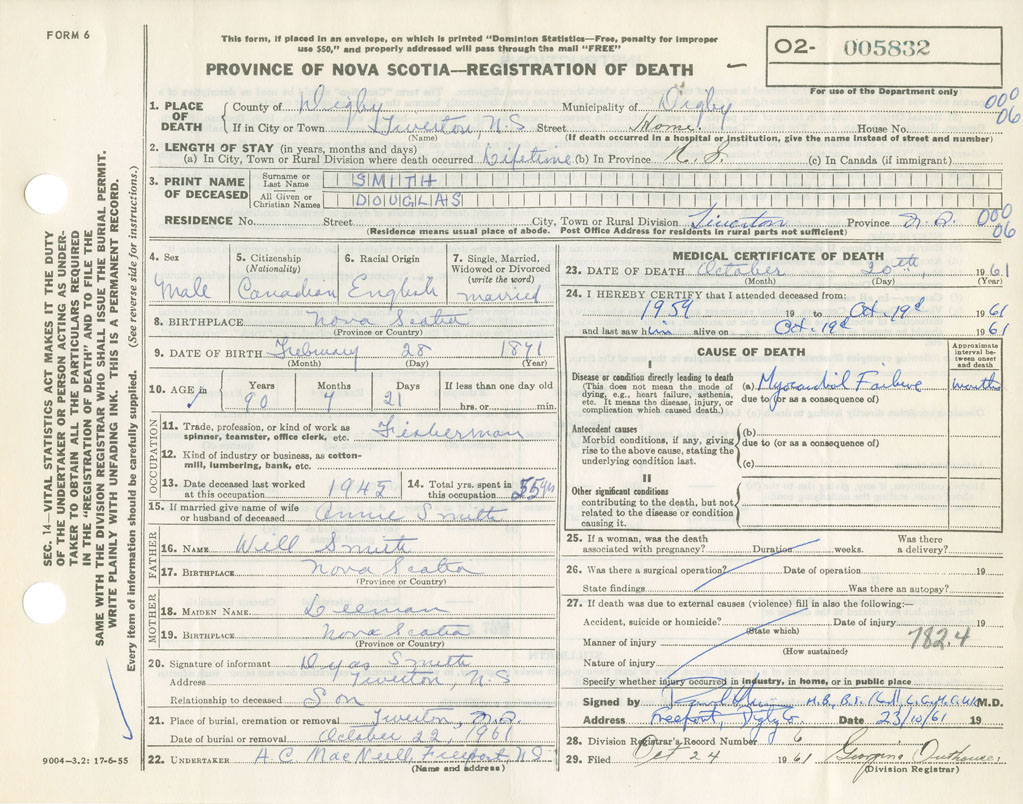 FORM 6
This form, if placed in an envelope, on which is printed "Dominion Statistics—Free, penalty for improper
use $50," and properly addressed will pass through the mail "FREE"
PROVINCE OF NOVA SCOTIA—REGISTRATION OF DEATH
02- 005832
For use of the Department only
000
06
1. PLACE OF DEATH
County of Digby Municipality of Digby
If in City or Town Tiverton, N.S Street Home. House No.
(Name) (If death occurred in a hospital or institution, give the name instead of street and number)
2. LENGTH OF STAY (in years, months and days)
(a) In City, Town or Rural Division where death occurred Lifetime (b) In Province N.S. (c) In Canada (if immigrant)
3. PRINT NAME OF DECEASED
Surname or Last Name SMITH
All Given or Christian Names DOUGLAS
RESIDENCE No. Street City, Town or Rural Division Tiverton Province N.S. 000
06
(Residence means usual place of abode. Post Office Address for residents in rural parts not sufficient)
4. Sex
Male
5. Citizenship
(Nationality)
Canadian
6. Racial Origin
English
7. Single, Married,
Widowed or Divorced
(write the word)
married
8. BIRTHPLACE Nova Scotia
(Province or Country)
9. DATE OF BIRTH February 28 1871
(Month) (Day) (Year)
10. AGE in Years Months Days If less than one day old
90 7 21 hrs. or min.
OCCUPATION
11. Trade, profession, or kind of work as
spinner, teamster, office clerk, etc. Fisherman
12. Kind of industry or business, as cotton-
mill, lumbering, bank, etc.
13. Date deceased last worked
at this occupation 1945
14. Total yrs. spent in
this occupation 55 yrs
15. If married give name of wife
or husband of deceased Annie Smith
FATHER
16. NAME Will Smith
17. BIRTHPLACE Nova Scotia
(Province or Country)
MOTHER
18. MAIDEN NAME Leeman
19. BIRTHPLACE Nova Scotia
(Province or Country)
20. Signature of informant Dyas Smith
Address Tiverton, N.S
Relationship to deceased Son
21. Place of burial, cremation or removal Tiverton, N.S.
Date of burial or removal October 22, 1961
22. UNDERTAKER A.C. MacNeill Freeport, N.S.
(Name and address)
MEDICAL CERTIFICATE OF DEATH
23. DATE OF DEATH October 20th 1961
(Month) (Day) (Year)
24. I HEREBY CERTIFY that I attended deceased from:
1959 19 to Oct. 19th 1961
and last saw him alive on Oct. 19th 1961
CAUSE OF DEATH
Approximate
interval be-
tween onset
and death
I
Disease or condition directly leading to death
(This does not mean the mode of
dying, e.g., heart failure, asthenia,
etc. It means the disease, injury, or
complication which caused death.)
(a) Myocardial Failure months
due to (or as a consequence of)
Antecedent causes
Morbid conditions, if any, giving
rise to the above cause, stating the
underlying condition last.
(b)
due to (or as a consequence of)
(c)
II
Other significant conditions
contributing to the death, but not
related to the disease or condition
causing it.
25. If a woman, was the death
associated with pregnancy? Duration weeks. Was there
a delivery?
26. Was there a surgical operation? Date of operation 19
State findings Was there an autopsy?
27. If death was due to external causes (violence) fill in also the following:—
Accident, suicide or homicide? Date of injury 19
(State which)
Manner of injury 782.4
(How sustained)
Nature of injury
Specify whether injury occurred in industry, in home, or in public place
Signed by M.D.
Address Freeport, Digby Co. Date 23/10/61 19
28. Division Registrar's Record Number 6
29. Filed Oct 24 1961 Georgina Outhouse
(Division Registrar)
SEC. 14—VITAL STATISTICS ACT MAKES IT THE DUTY
OF THE UNDERTAKER OR PERSON ACTING AS UNDER-
TAKER TO OBTAIN ALL THE PARTICULARS REQUIRED
IN THE "REGISTRATION OF DEATH" AND TO FILE THE
SAME WITH THE DIVISION REGISTRAR WHO SHALL ISSUE THE BURIAL PERMIT.
WRITE PLAINLY WITH UNFADING INK. THIS IS A PERMANENT RECORD.
Every item of information should be carefully supplied. (See reverse side for instructions.)
9004—3.2: 17-6-55